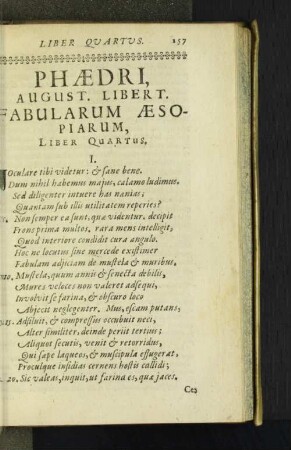 LIBER QUARTUS. 257
PHÆDRI,
AUGUST. LIBERT.
FABULARUM ÆSO-
PIARUM,
LIBER QUARTUS.
I.
Joculare tibi videtur: & sane bene.
Dum nihil habemus majus, calamo ludimus.
Sed diligenter intuere has nænias;
Quantam sub illis utilitatem reperies?
Non semper ea sunt, quæ videntur. decipit
Frons prima multos, rara mens intelligit,
Quod interiore condidit cura angulo.
Hoc ne locutus sine mercede existimer
Fabulam adjiciam de mustela & muribus.
10. Mustela, quum annis & senecta debilis,
Mures veloces non valeret adsequi,
Involvit se farina, & obscuro loco
Abjecit neglegenter. Mus, escam putans,
Adsiluit, & compressus occubuit neci,
Alter similiter, deinde periit tertius;
Aliquot secutis, venit & retorridus,
Qui sæpe laqueos, & muscipula effugerat.
Proculque insidias cernens hostis callidi;
20. Sic valeas, inquit, ut farina es, quæ jaces.